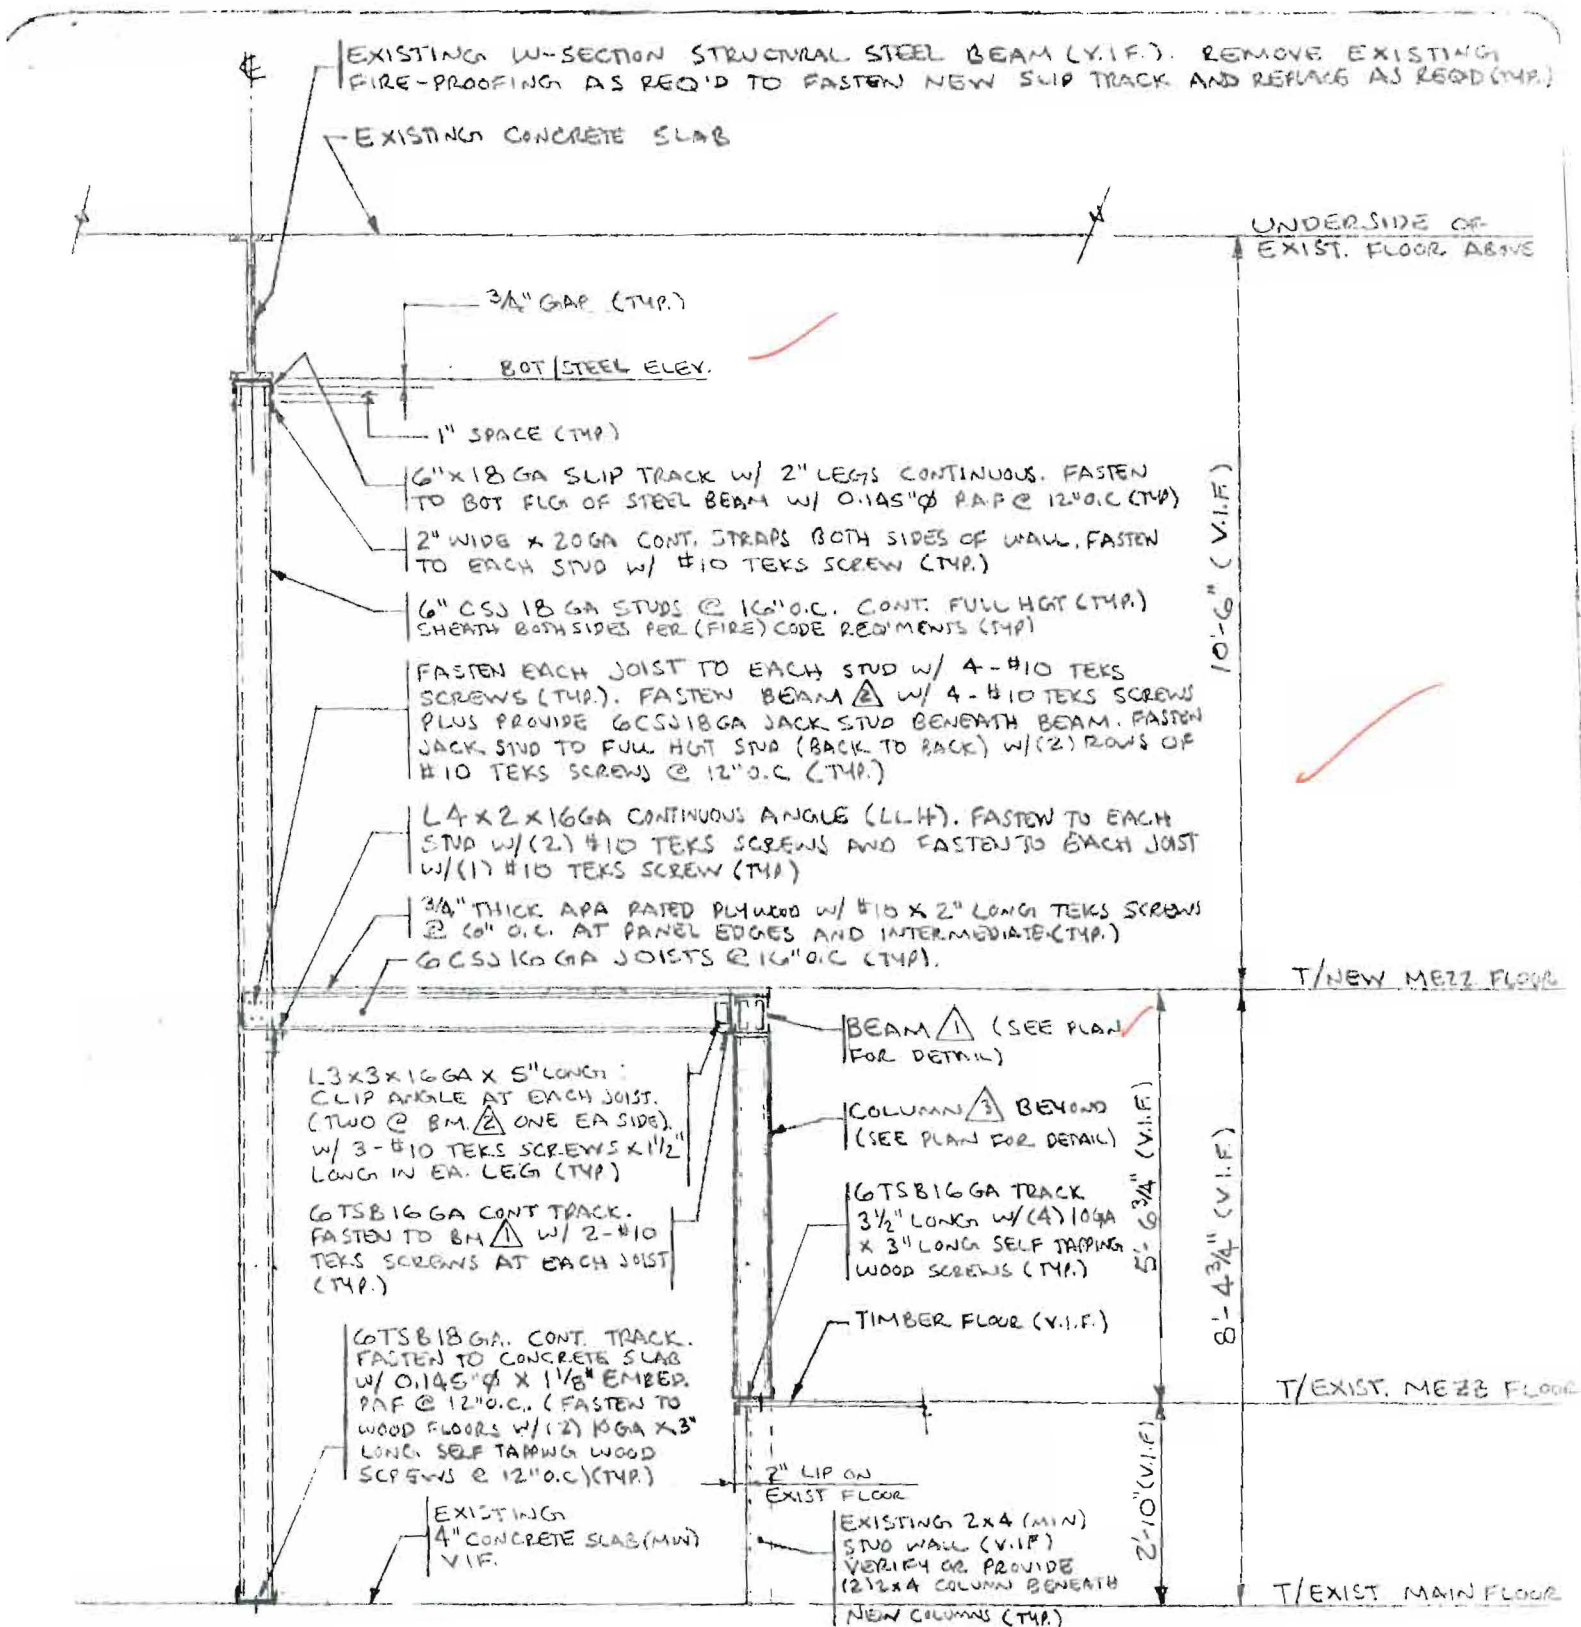 ℄
EXISTING W-SECTION STRUCTURAL STEEL BEAM (V.I.F.). REMOVE EXISTING
FIRE-PROOFING AS REQ'D TO FASTEN NEW SLIP TRACK AND REPLACE AS REQD (TYP.)
EXISTING CONCRETE SLAB
UNDERSIDE OF
EXIST. FLOOR ABOVE
3/4" GAP (TYP.)
BOT/STEEL ELEV.
1" SPACE (TYP)
6" X 18 GA SLIP TRACK W/ 2" LEGS CONTINUOUS. FASTEN
TO BOT FLG OF STEEL BEAM W/ 0.145"Ø P.A.F @ 12" O.C (TYP)
2" WIDE X 20GA CONT. STRAPS BOTH SIDES OF WALL. FASTEN
TO EACH STUD W/ #10 TEKS SCREW (TYP.)
6" CSJ 18 GA STUDS @ 16" O.C. CONT. FULL HGT (TYP.)
SHEATH BOTH SIDES PER (FIRE) CODE REQ'MENTS (TYP)
10'-6" (V.I.F.)
FASTEN EACH JOIST TO EACH STUD W/ 4-#10 TEKS
SCREWS (TYP.). FASTEN BEAM 2 W/ 4-#10 TEKS SCREWS
PLUS PROVIDE 6CSJ18GA JACK STUD BENEATH BEAM. FASTEN
JACK STUD TO FULL HGT STUD (BACK TO BACK) W/(2) ROWS OF
#10 TEKS SCREWS @ 12" O.C (TYP.)
L4 X 2 X 16GA CONTINUOUS ANGLE (LLH). FASTEN TO EACH
STUD W/(2) #10 TEKS SCREWS AND FASTEN TO EACH JOIST
W/(1) #10 TEKS SCREW (TYP)
3/4" THICK APA RATED PLYWOOD W/ #10 X 2" LONG TEKS SCREWS
@ 6" O.C. AT PANEL EDGES AND INTERMEDIATE (TYP.)
6 CSJ 16 GA JOISTS @ 16" O.C (TYP).
T/NEW MEZZ FLOOR
BEAM 1 (SEE PLAN
FOR DETAIL)
L3X3X16GA X 5" LONG
CLIP ANGLE AT EACH JOIST.
(TWO @ BM. 2 ONE EA SIDE)
W/ 3-#10 TEKS SCREWS X 1 1/2"
LONG IN EA. LEG (TYP)
COLUMN 3 BEYOND
(SEE PLAN FOR DETAIL)
5'-6 3/4" (V.I.F)
8'-4 3/4" (V.I.F)
6TSB16GA TRACK
3 1/2" LONG W/(4) 10GA
X 3" LONG SELF TAPPING
WOOD SCREWS (TYP.)
6TSB16 GA CONT TRACK.
FASTEN TO BM 1 W/ 2-#10
TEKS SCREWS AT EACH JOIST
(TYP.)
TIMBER FLOOR (V.I.F.)
6TSB18GA. CONT. TRACK.
FASTEN TO CONCRETE SLAB
W/ 0.145"Ø X 1 1/8" EMBED.
PAF @ 12" O.C. (FASTEN TO
WOOD FLOORS W/(2) 10GA X 3"
LONG SELF TAPPING WOOD
SCREWS @ 12" O.C)(TYP.)
T/EXIST. MEZZ FLOOR
2" LIP ON
EXIST FLOOR
2'-10" (V.I.F)
EXISTING
4" CONCRETE SLAB (MIN)
V.I.F.
EXISTING 2X4 (MIN)
STUD WALL (V.I.F)
VERIFY OR PROVIDE
(2)2X4 COLUMN BENEATH
NEW COLUMNS (TYP.)
T/EXIST MAIN FLOOR